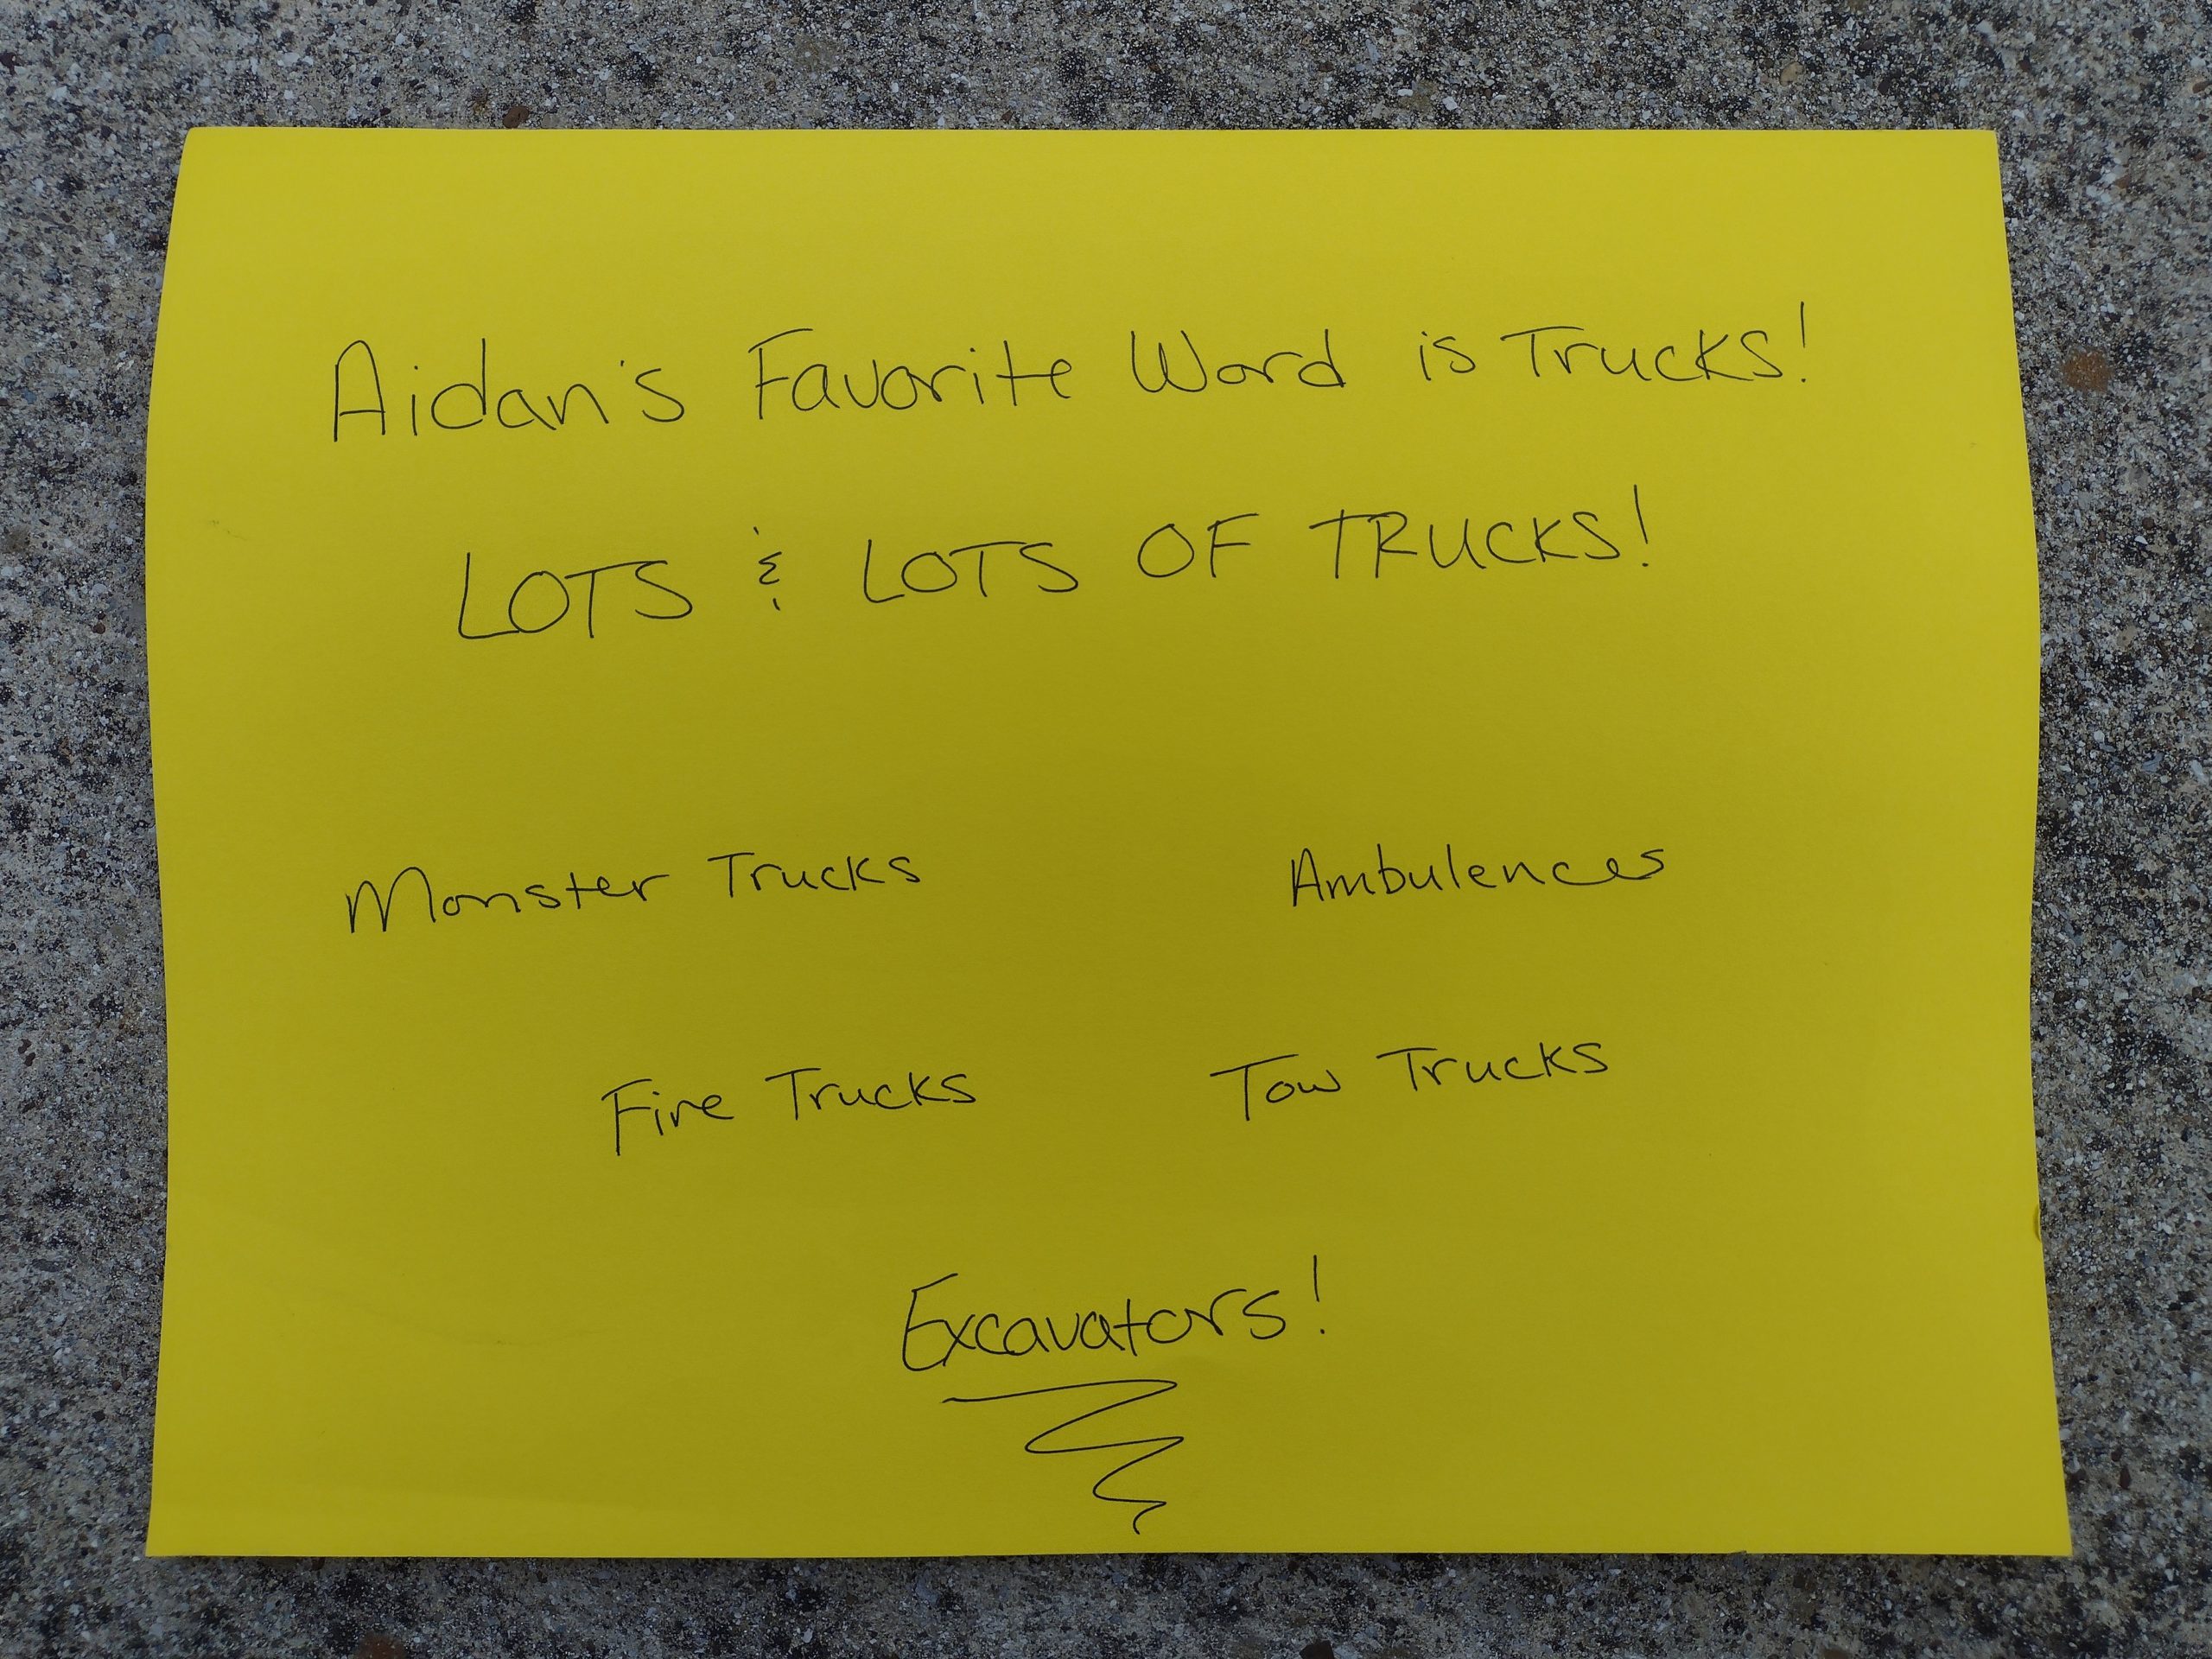 Aidan's Favorite Word is Trucks!
LOTS & LOTS OF TRUCKS!
Monster Trucks Ambulences
Fire Trucks Tow Trucks
Excavators!